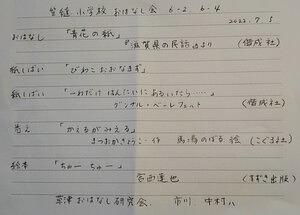 笠縫小学校 おはなし会 6-2 6-4
2022. 7. 5
おはなし 「青花の紙」
『滋賀県の民話』より (偕成社)
紙しばい 「びわこおおなまず」
紙しばい 「一わだけ はんたいに あるいたら……」
グンナル・ベーレフェルト (偕成社)
巻え 「かえるがみえる」
まつおかきょうこ・作 馬場のぼる 絵 (こぐま社)
絵本 「ちゅーちゅー」
宮西達也 (すずき出版)
草津おはなし研究会 市川 中村ハ